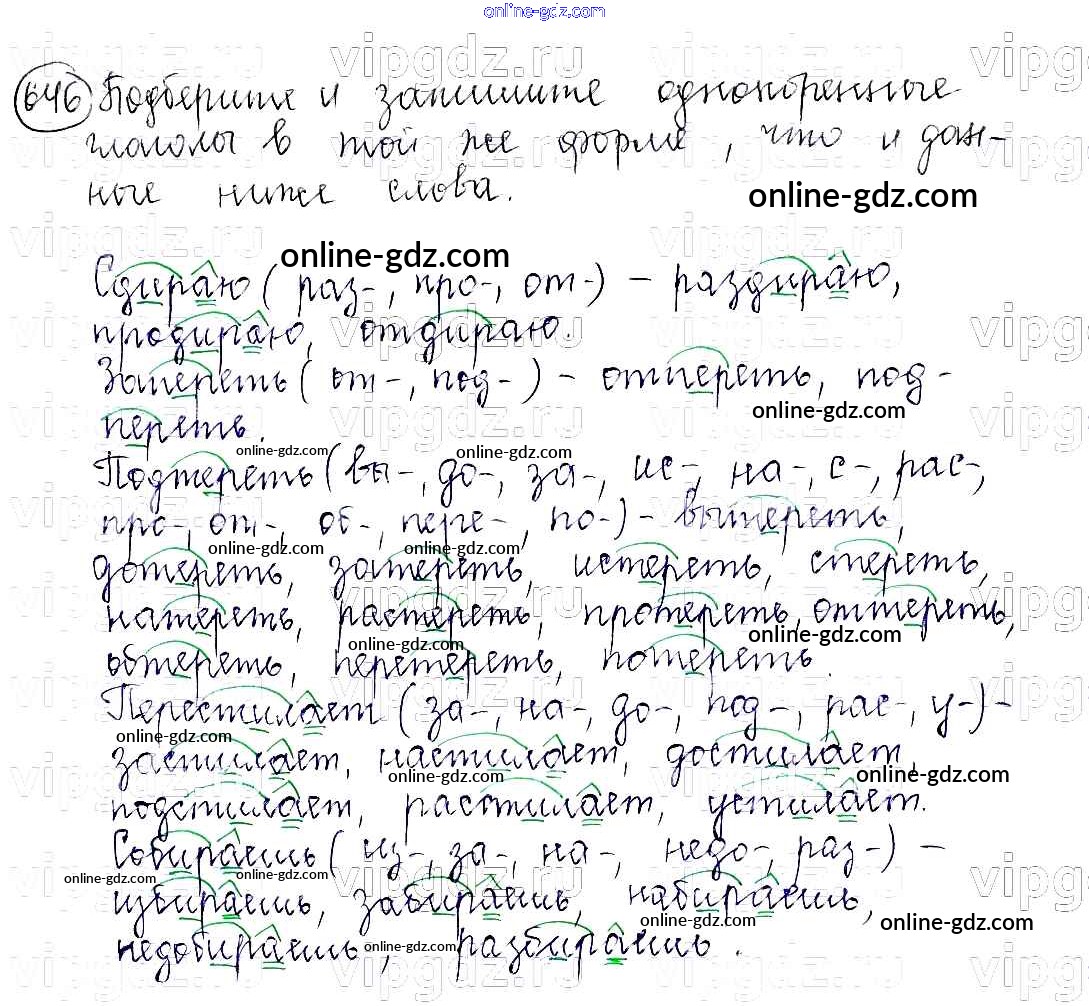 online-gdz.com
646 Подберите и запишите однокоренные
глаголы в той же форме, что и дан-
ные ниже слова.
online-gdz.com
online-gdz.com
Сдираю (раз-, про-, от-) – раздираю,
продираю, отдираю.
Запереть (от-, под-) – отпереть, под-
online-gdz.com
переть.
online-gdz.com online-gdz.com
Подтереть (вы-, до-, за-, ис-, на-, с-, рас-,
про-, от-, об-, пере-, по-) – вытереть,
online-gdz.com online-gdz.com
дотереть, затереть, истереть, стереть,
натереть, растереть, протереть, оттереть,
online-gdz.com online-gdz.com
обтереть, перетереть, потереть.
Перестилает (за-, на-, до-, под-, рас-, у-) –
online-gdz.com
застилает, настилает, достилает,
online-gdz.com online-gdz.com
подстилает, расстилает, устилает.
Собираешь (из-, за-, на-, недо-, раз-) –
online-gdz.com online-gdz.com
избираешь, забираешь, набираешь,
online-gdz.com online-gdz.com
недобираешь, разбираешь.
online-gdz.com